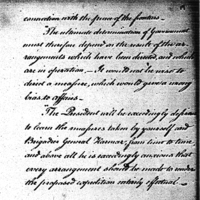 connection with the firma of the frontiers.
The ultimate determination of Government
must therefore depend on the result of the ar-
rangements which have been directed, and which
are in operation — It would not be wise to
direct a measure, which would give a wrong
bias to affairs.
The President will be exceedingly desirous
to learn the measures taken by yourself and
Brigadier General Harmar, from time to time
and above all he is exceedingly anxious that
every arrangement should be made to render
the proposed expedition entirely effectual —